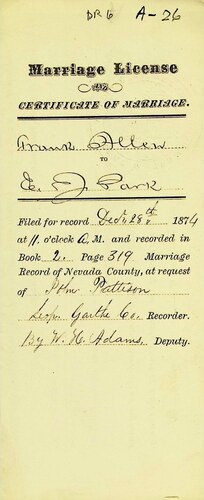 DR 6 A-26
Marriage License
AND
CERTIFICATE OF MARRIAGE.
Frank Allen
TO
E. J. Park
Filed for record Dec. 28th, 1874
at 11. o'clock A. M. and recorded in
Book 2. Page 319 Marriage
Record of Nevada County, at request
of Pattison
Garthe Co. Recorder.
By W. H. Adams, Deputy.